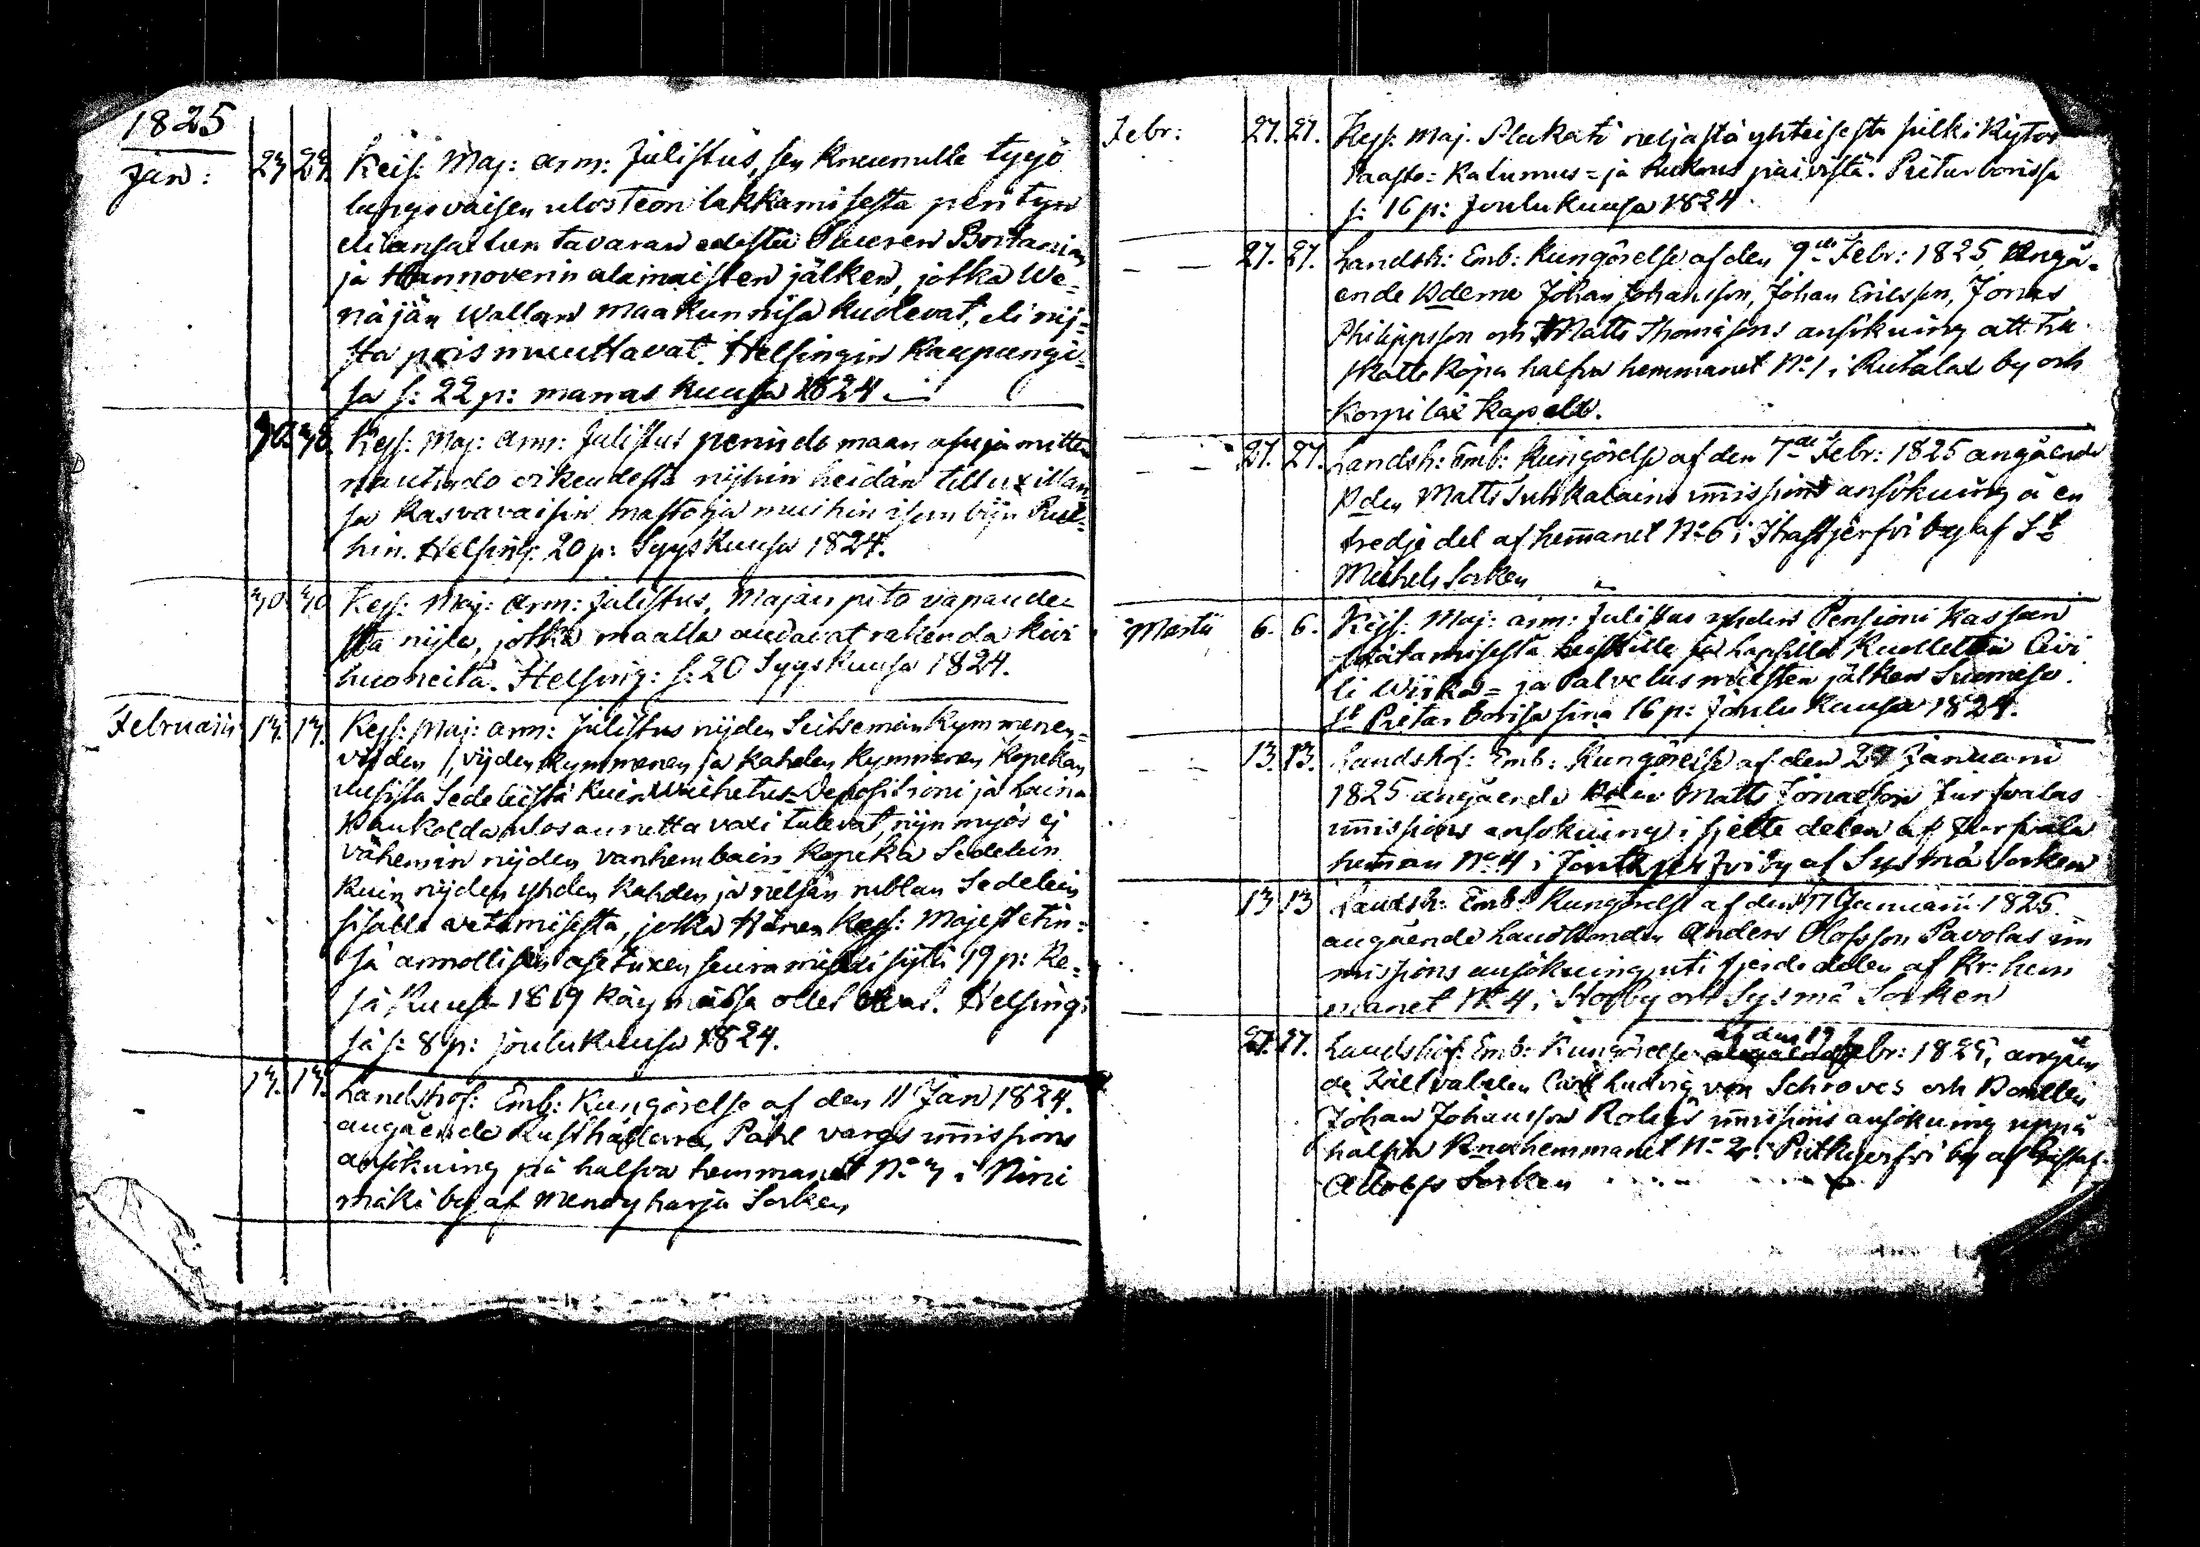 1825
Jan: 23 23. Keis: Maj: arm: Julistus, sen kruunulle tygö
langevaisen ulosteon lakkamisesta perityn
eli ansaitun tavaran edestä Suuren Britanian
ja Hannoverin alamaisten jälken, jotka We-
näjän Wallan maakunnisa kuolevat, eli nij-
stä pois muuttavat. Helsingin Kaupungi-
sa s: 22 p: marras kuusa 1824.
30. 30. Keis: Maj: arm: Julistus perindö maan asujamitten
nautindo oikeudesta nijhin heidän tilluxillan-
sa kasvavaisin mastoja muihin isombijn Pui-
hin. Helsing: 20 p: Syys kuusa 1824.
30. 30 Keis: Maj: arm: Julistus, Majan pito vapaude-
sta nijlle, jotka maalla andavat rakenda kivi
huoneita. Helsing: s: 20 Syyskuusa 1824.
Februarii 13. 13. Keis: Maj: arm: Julistus nijden Seitsemän kymmenen-
vijden, vijden kymmenen ja kahden kymmenen kopekan
uusista Sedeleistä kuin Waihetus- Depositioni ja Laina
Pankolda ulos annettavaxi tulevat, nijn myös ej
vähemin nijden vanhembain kopeka Sedelein
kuin nijden yhden kahden ja neljän rublan Sedelein
sisälle vetämisestä, jotka Hänen Keis: Majestetin-
sä armollisen asetuxen seuramisexi siitä 19 p: Ke-
sä kuusa 1819 käymässä ollet ovat. Helsing:
sä s: 8 p: joulukuusa 1824.
13. 13. Landshöf: Emb: Kungörelse af den 11 Jan 1824.
angående Rusthållaren Påhl Vargs immissions
ansökning på halfva hemmanet No 3 i Nini
mäki by af Mendyharju Socken
Febr: 27. 27. Keis: Maj. Plakati neljästä yhteisestä julki Kijtos
Paasto- Katumus- ja Rukous päivistä. Pietarborissa
s: 16 p: Joulukuusa 1824.
27. 27. Landsh: Emb: Kungörelse af den 9de Febr: 1825, angå-
ende Bderne Johan Johansson, Johan Ericsson, Jonas
Philippsson och Matts Thomassons ansökning att till
skatte köpa halfva hemmanet No 1 i Rutalax by och
Korpilax kapell.
27. 27. Landsh: Emb: Kungörelse af den 7de Febr: 1825 angående
Bden Matts Suhkalains immissions ansökning å en
tredje del af hemanet No 6 i Ihastjerfvi by af St
Michels Socken
Martii 6. 6. Keis: Maj: arm: Julistus yhden Pensioni kassan
säätämisestä leskille ja lapsille kuolletten Civi
li Wirka- ja Palvelus miesten jälken Suomesa.
St Pietarborisa sina 16 p: Joulukuusa 1824.
13. 13. Landshof: Emb: Kungörelse af den 27 Januarii
1825 angående Matts Jonasson
immissions ansökning i sjette delen af
heman No 4 i by af Sysmä Socken
13 13 Landsh: Emb: Kungörelse af den 17 Januarii 1825
angående Landbonden Anders Olofsson Pavolas im
missions ansökning uti fjerde delen af Kr: hem
manet No 4 i Storby och Sysmä Socken
27. 27. Landshöf: Emb: Kungörelse af den 19 Febr: 1825, angåen
de Carl Ludvig von Schroves och
Johan Johansson immissions ansökning uppå
halfva hemmanet No 2 i Putkijerfvi by af Gustaf
Adolfs Socken